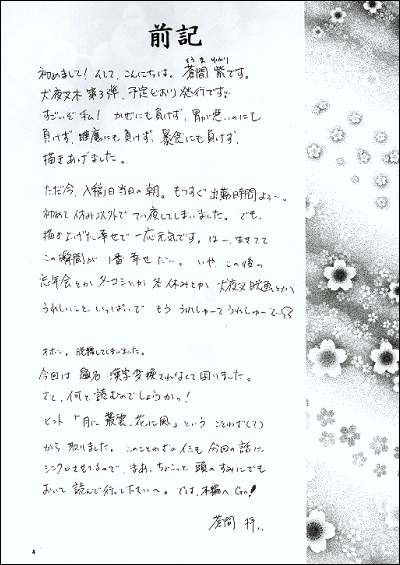 前記
初めまして！そして、こんにちは。蒼間 紫です。
犬夜叉本 第3弾、予定どおり発行です。
すごいぞ 私！ かぜにも負けず、胃が悪いのにも
負けず、睡魔にも負けず、暴食にも負けず、
描きあげました。
ただ今、入稿日当日の朝。もうすぐ出勤時間よ〜。
初めて 休み以外で 徹夜してしまいました。でも、
描き上げた幸せで 一応元気です。は〜、
この瞬間が 1番 幸せだ〜。いや、この後の
忘年会とか ターコミとか 冬休みとか 犬夜叉映画とか
うれしいこと いっぱいで もう うれしゅーて うれしゅーて
オホン。脱線してしまいました。
今回は 題名 漢字変換されなくて困りました。
さて、何と読むのでしょうかっ！
ヒント 「月に叢雲、花に風」という ことわざ
から 取りました。このことわざのイミも 今回の話に
シンクロさせてるので、まあ、ちょこっと 頭のすみにでも
おいて 読んで行って下さいへ。では、本編へ Go！
蒼間
4